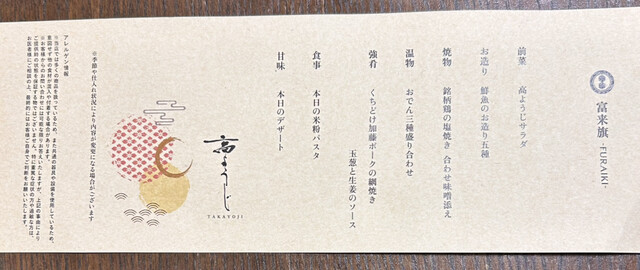 富来旗
-FURAIKI-
前菜 高ようじサラダ
お造り 鮮魚のお造り五種
焼物 銘柄鶏の塩焼き 合わせ味噌添え
温物 おでん三種盛り合わせ
強肴 くちどけ加藤ポークの網焼き
玉葱と生姜のソース
食事 本日の米粉パスタ
甘味 本日のデザート
高ようじ
TAKAYOJI
※季節や仕入れ状況により内容が変更になる場合がございます
アレルゲン情報